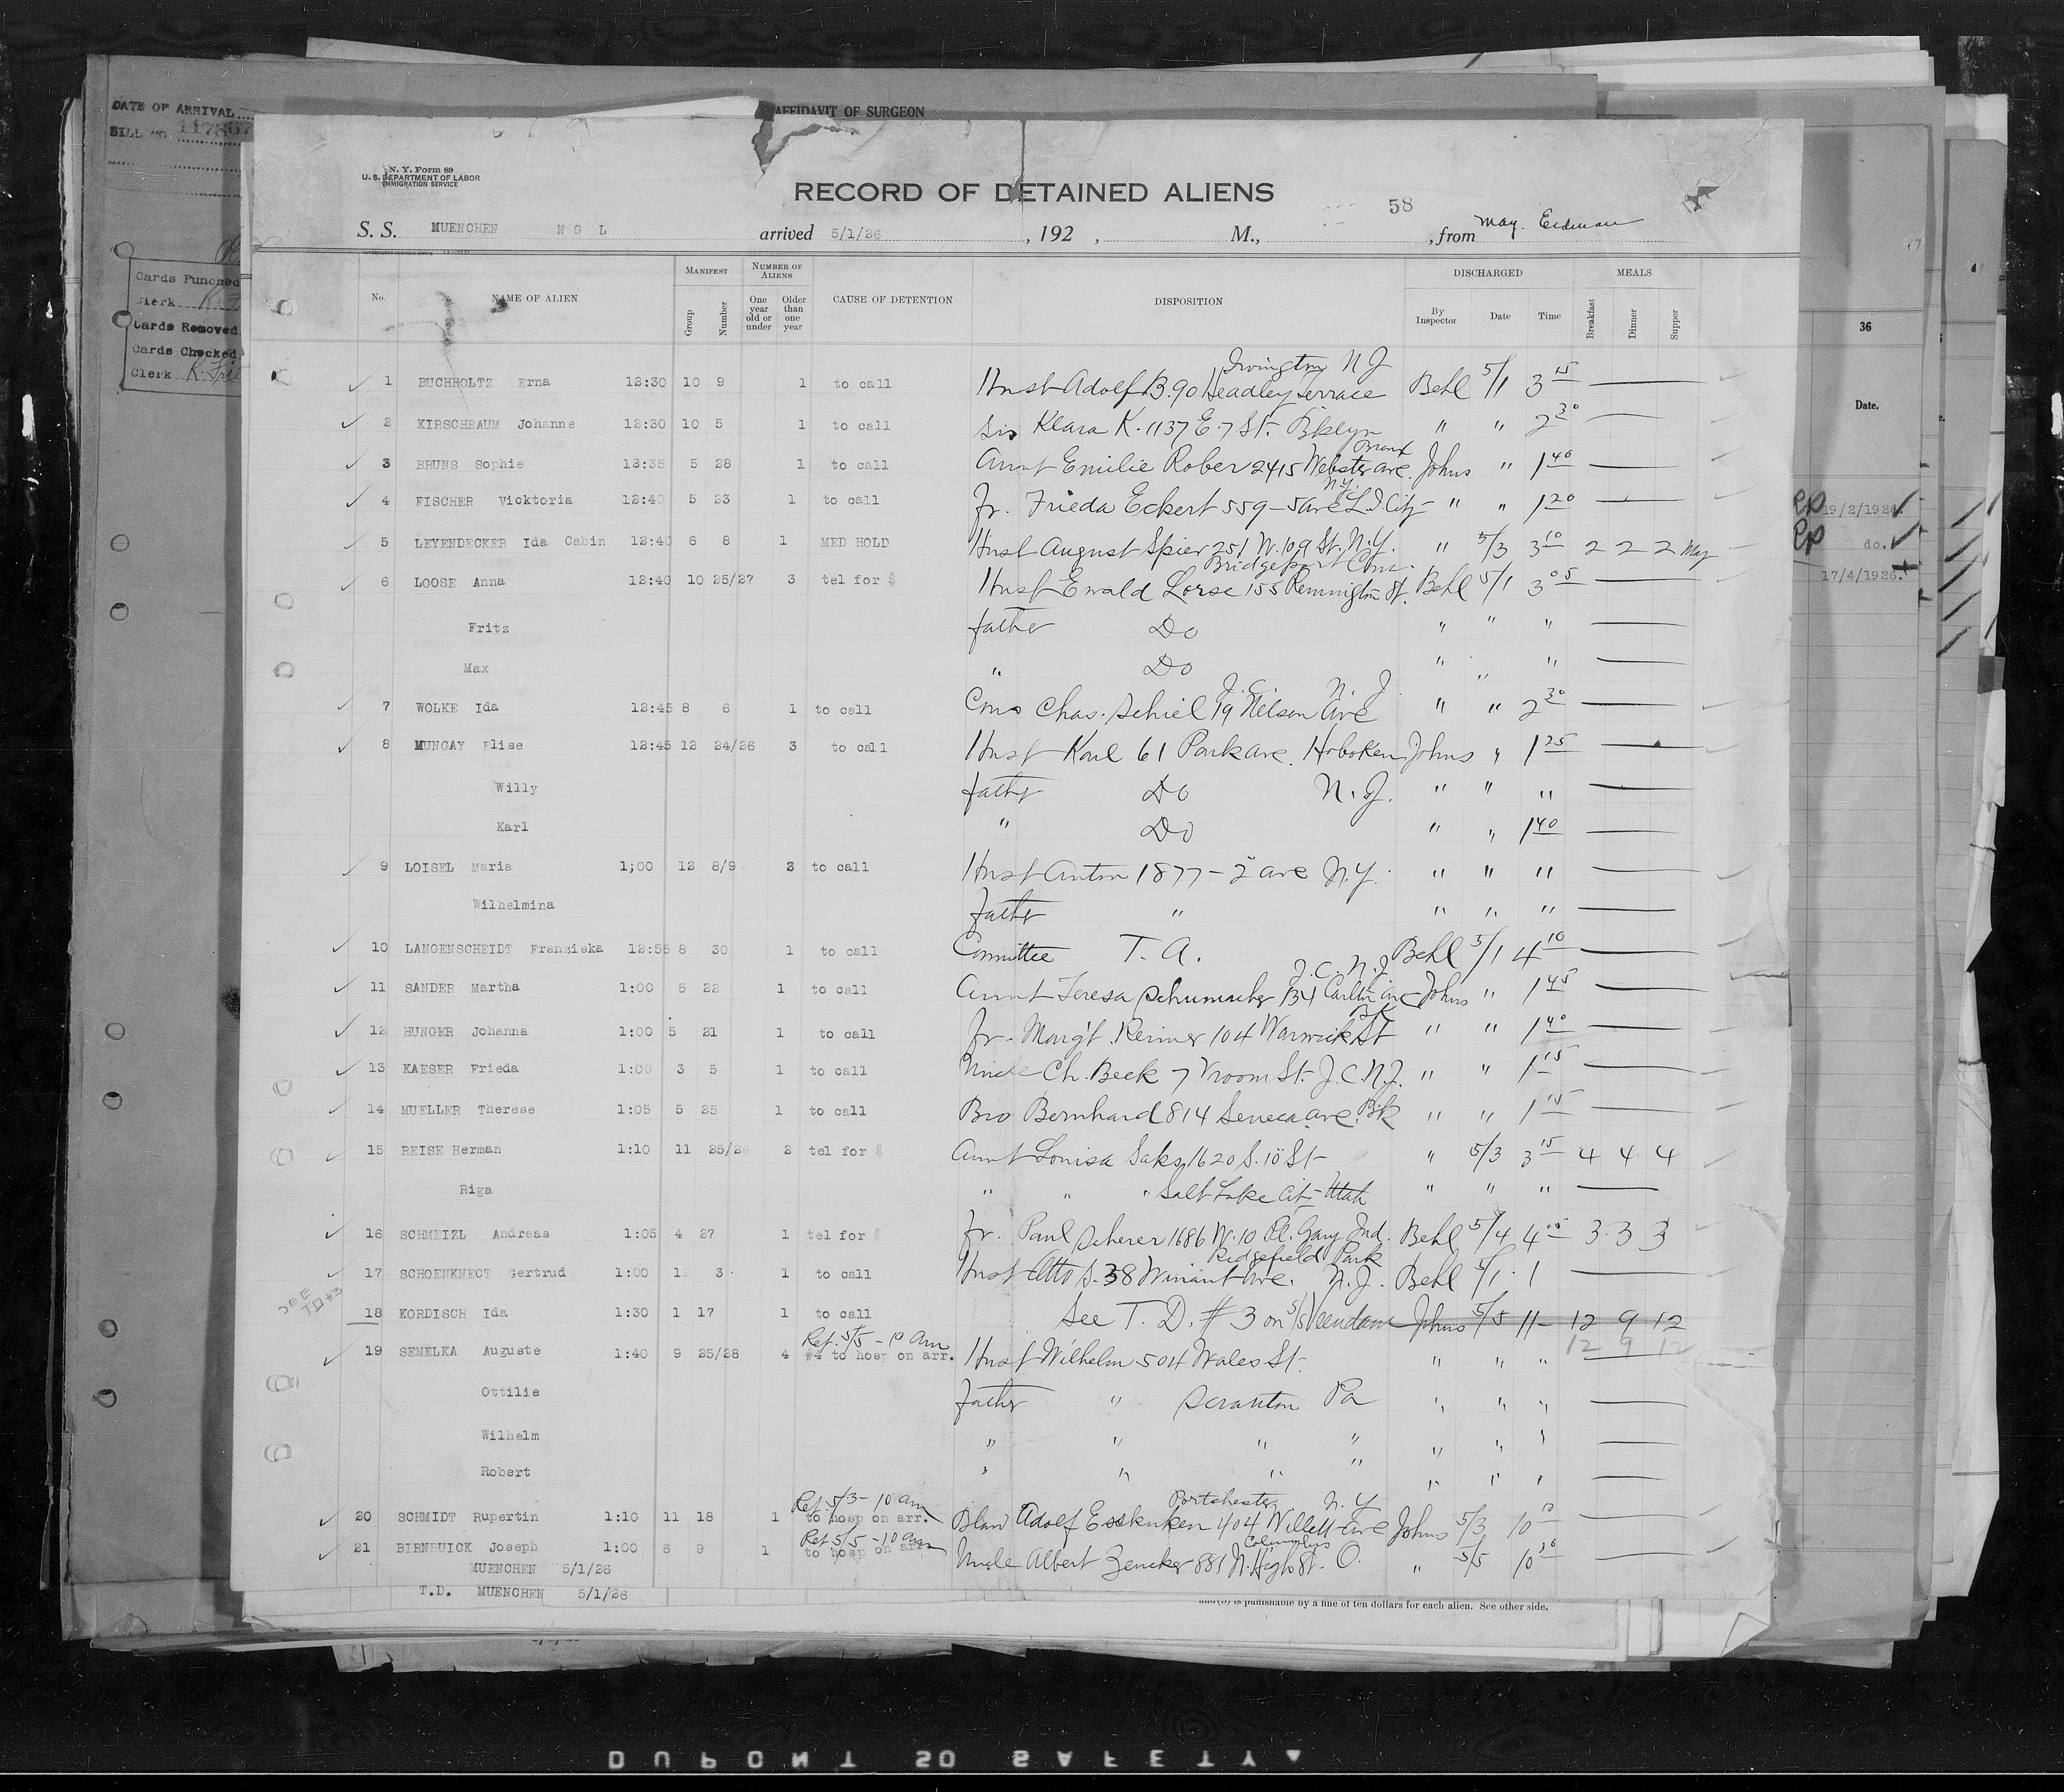 AFFIDAVIT OF SURGEON
DATE OF ARRIVAL
BILL NO. 117867
Cards Punched
Clerk
Cards Removed
Cards Checked
Clerk
N. Y. Form 89
U. S. DEPARTMENT OF LABOR
IMMIGRATION SERVICE
RECORD OF DETAINED ALIENS
58
S. S. MUENCHEN N G L arrived 5/1/26, 192 , M., , from May. Erdman
No. NAME OF ALIEN MANIFEST Group Number NUMBER OF ALIENS One year old or under Older than one year CAUSE OF DETENTION DISPOSITION DISCHARGED By Inspector Date Time MEALS Breakfast Dinner Supper
Irvington N J
1 BUCHHOLTZ Erna 12:30 10 9 1 to call Husb Adolf B. 90 Headley Terrace Behl 5/1 3 15
2 KIRSCHBAUM Johanne 12:30 10 5 1 to call Sis Klara K. 1137 E. 7 St. Bklyn " " 2 30
Bronx
3 BRUNS Sophie 12:35 5 28 1 to call Aunt Emilie Rober 2415 Webster ave. Johns " 1 40
N.Y.
4 FISCHER Vicktoria 12:40 5 23 1 to call Fr. Frieda Eckert 559-5 ave L.I. City " " 1 20
5 LEYENDECKER Ida Cabin 12:40 6 8 1 MED HOLD Husb August Spier 251 W. 109 St. N.Y. " 5/3 3 10 2 2 2 May
Bridgeport Conn.
6 LOOSE Anna 12:40 10 25/27 3 tel for $ Husb Ewald Lorse 155 Remington St. Behl 5/1 3 05
Fritz father Do " " "
Max " Do " " "
J. C. N. J.
7 WOLKE Ida 12:45 8 6 1 to call Cous Chas. Schiel 19 Nelson Ave " " 2 30
8 MUNGAY Elise 12:45 12 24/26 3 to call Husb Karl 61 Park ave. Hoboken Johns " 1 25
Willy father Do N. J. " " "
Karl " Do " " 1 40
9 LOISEL Maria 1;00 12 8/9 3 to call Husb Anton 1877 - 2 ave N.Y. " " "
Wilhelmina father " " " "
10 LANGENSCHEIDT Franziska 12:55 8 30 1 to call Committee T. A. Behl 5/1 4 10
J. C. N. J
11 SANDER Martha 1:00 5 22 1 to call Aunt Teresa Schumacher 134 Carlton ave Johns " 1 45
Bk
12 HUNGER Johanna 1:00 5 21 1 to call Fr. Marg't. Reimer 104 Warwick St " " 1 40
13 KAESER Frieda 1:00 3 5 1 to call Uncle Ch. Beck 7 Vroom St. J. C. N. J. " " 1 15
14 MUELLER Therese 1:05 5 25 1 to call Bro Bernhard 814 Seneca ave. Bk " " 1 15
15 REISE Herman 1:10 11 25/26 2 tel for $ Aunt Louisa Saks, 1620 S. 10 St " 5/3 3 15 4 4 4
Riga " " " Salt Lake City Utah " " "
16 SCHMEIZL Andreas 1:05 4 27 1 tel for $ Fr. Paul Scherer 1686 W. 10 Pl. Gary Ind. Behl 5/4 4 05 3 3 3
Ridgefield Park
17 SCHOENKNECT Gertrud 1:00 12 3 1 to call Husb Otto S. 38 Winant Ave. N. J. Behl 5/1 1
SEE TD #3
18 KORDISCH Ida 1:30 1 17 1 to call See T. D. # 3 on 5/5 Veendam Johns 5/5 11- 12 9 12
Ret. 5/5 - 10 am 12 9 12
19 SEMELKA Auguste 1:40 9 25/28 4 #4 to hosp on arr. Husb Wilhelm 504 Wales St. " " "
Ottilie father " Scranton Pa " " "
Wilhelm " " " " " " "
Robert " " " " " " "
Ret. 5/3 - 10 am Portchester N. Y
20 SCHMIDT Rupertin 1:10 11 18 1 to hosp on arr. Adolf Esskuken 404 Willett ave Johns 5/3 10 10
Ret 5/5 - 10 am Columbus
21 BIRNBUICK Joseph 1:00 6 9 1 to hosp on arr. Uncle Albert Zencker 881 N. High St. O. " 5/5 10 30
MUENCHEN 5/1/26
T.D. MUENCHEN 5/1/26
and (b) is punishable by a fine of ten dollars for each alien. See other side.
36
Date.
19/2/1926.
do.
17/4/1926.
DUPONT SO SAFETY